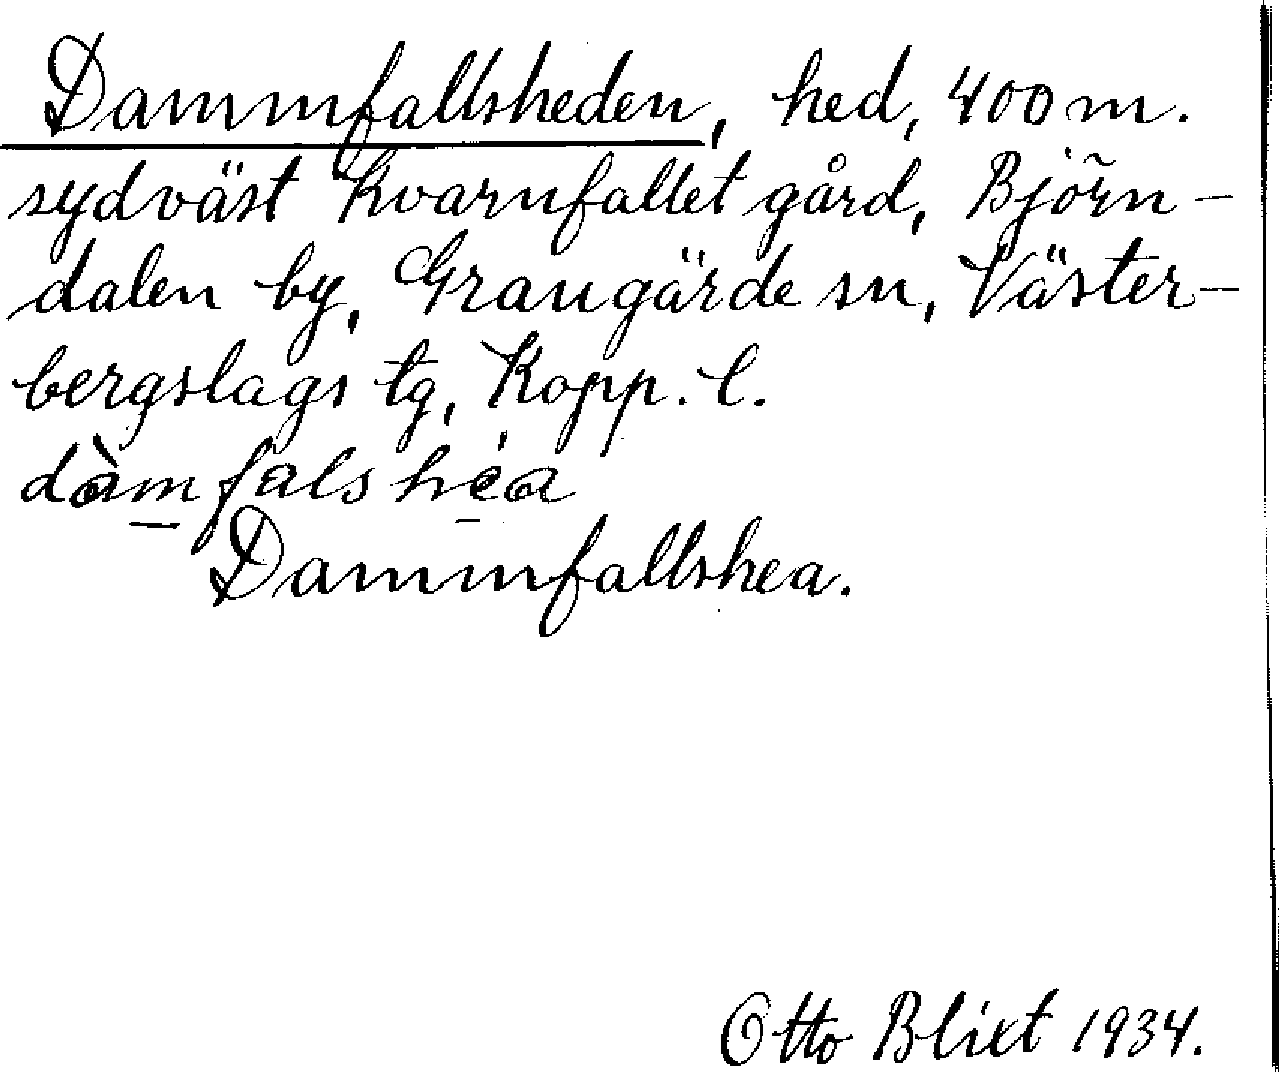 Dammfallsheden, hed, 400 m.
sydväst Kvarnfallet gård, Björn-
dalen by, Grangärde sn, Väster-
bergslags tg, Kopp. l.
dàm̲fals hè̲a
Dammfallshea.
Otto Blixt 1934.